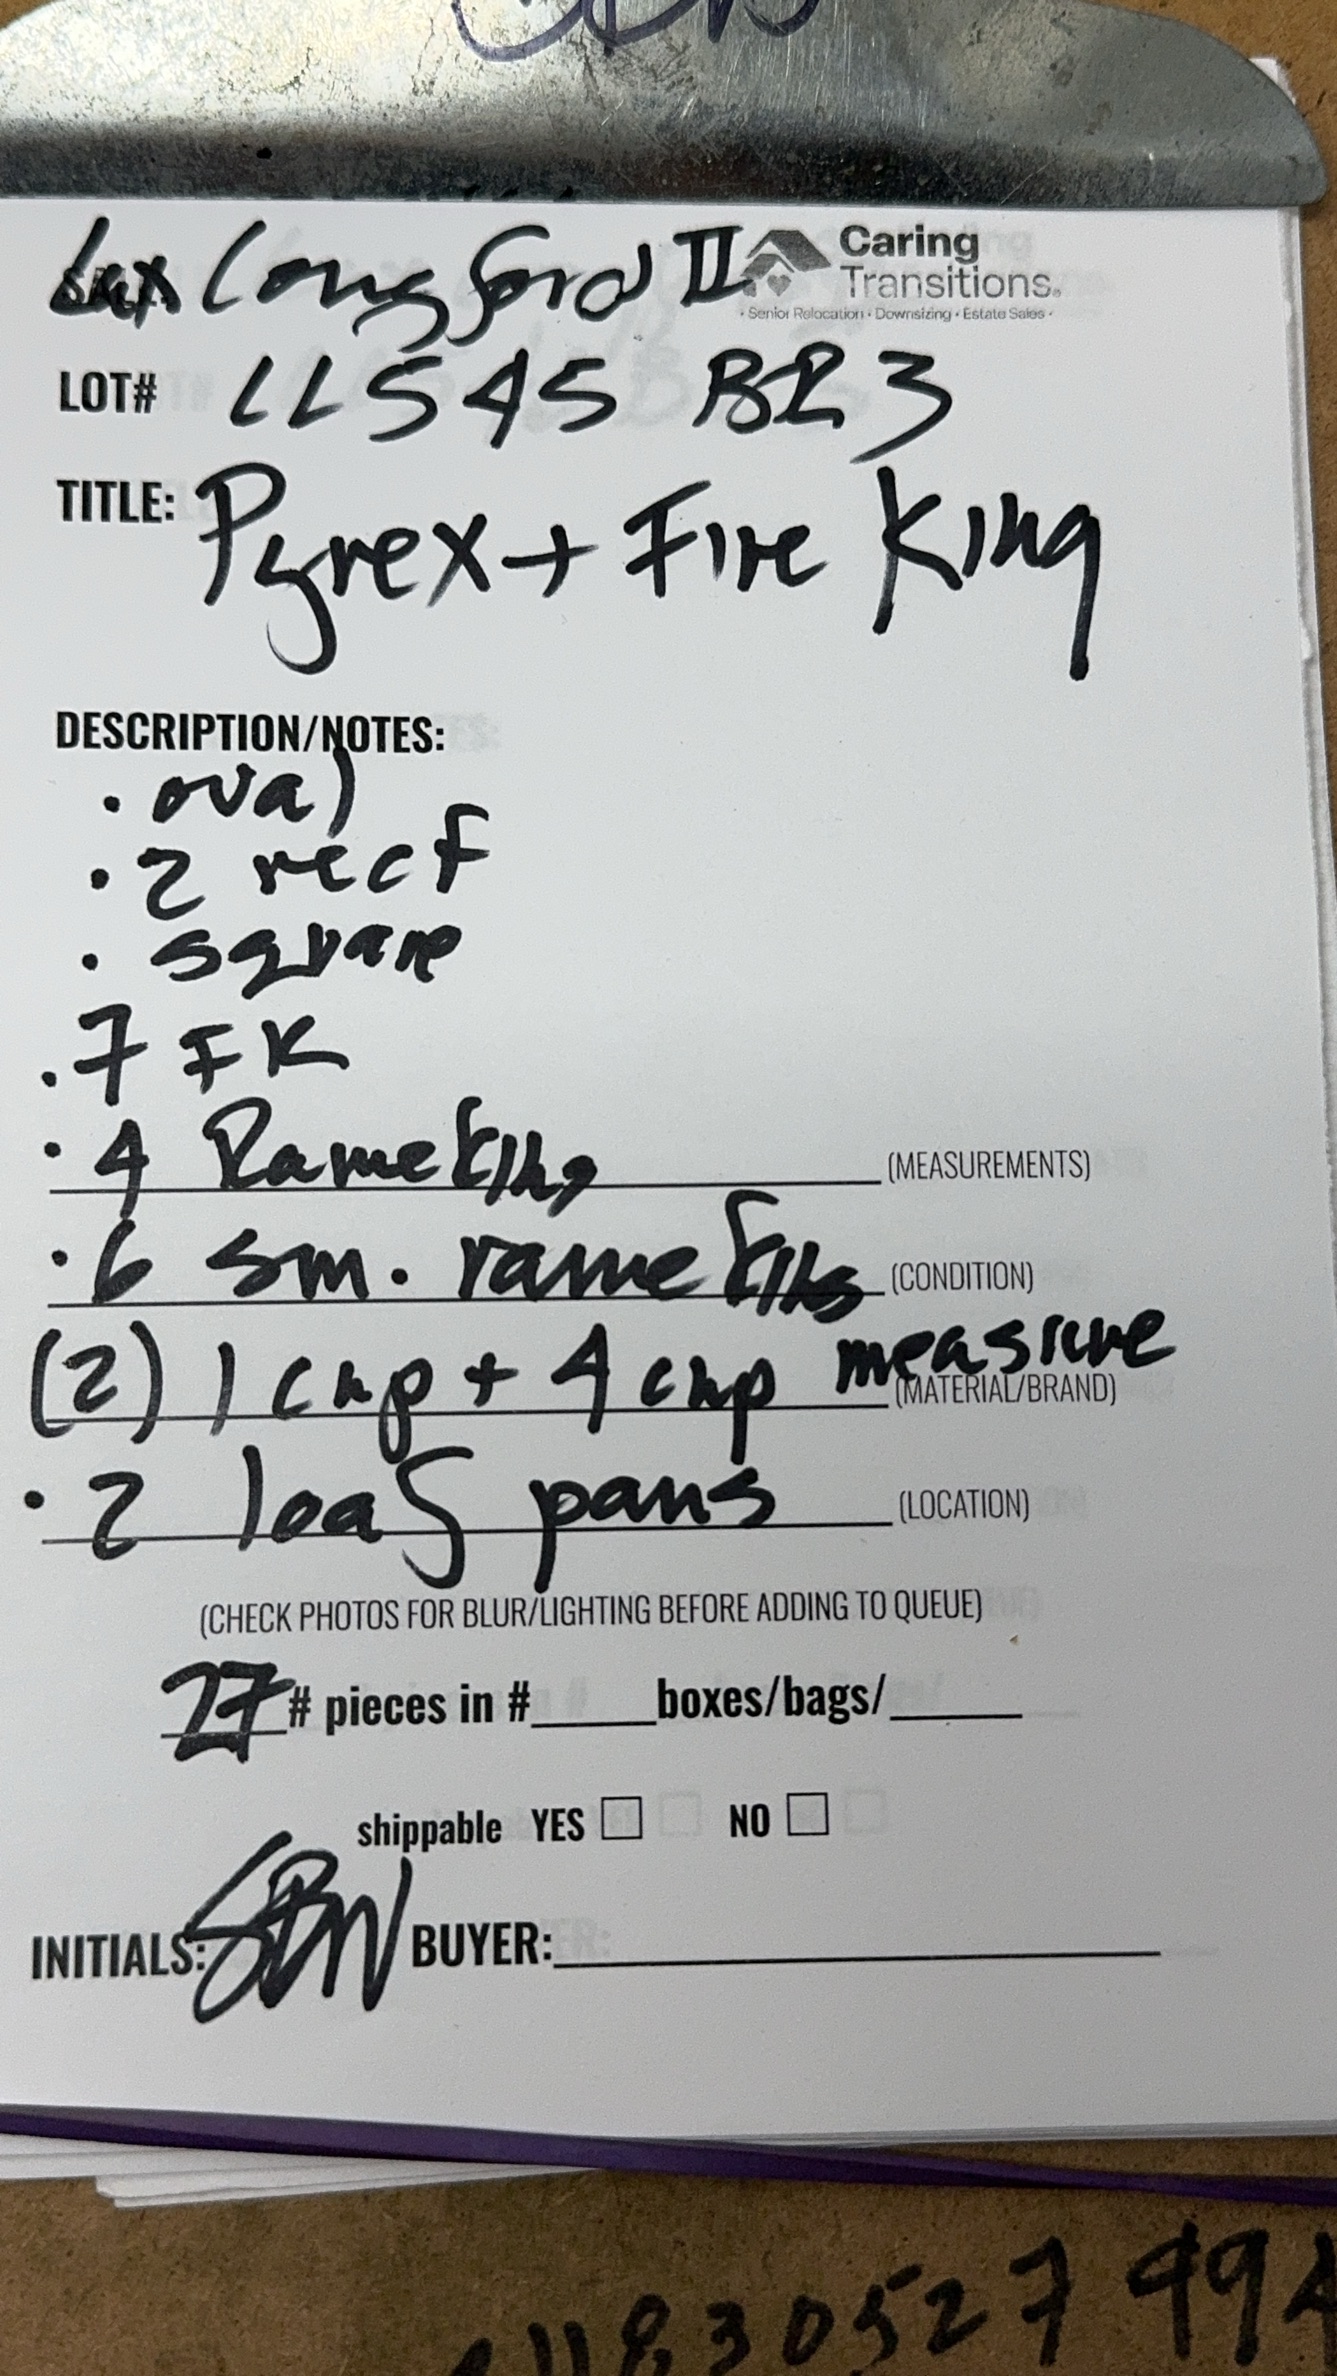 Lex Longford II
Caring
Transitions.
• Senior Relocation • Downsizing • Estate Sales •
LOT# LL545 BR3
TITLE: Pyrex + Fire King
DESCRIPTION/NOTES:
• oval
• 2 rect
• square
• 7 FK
• 4 Ramekins (MEASUREMENTS)
• 6 sm. ramekins (CONDITION)
(2) 1 cup + 4 cup measure (MATERIAL/BRAND)
• 2 loaf pans (LOCATION)
(CHECK PHOTOS FOR BLUR/LIGHTING BEFORE ADDING TO QUEUE)
27 # pieces in #_____boxes/bags/_____
shippable YES ☐ NO ☐
INITIALS: SBW BUYER:_____